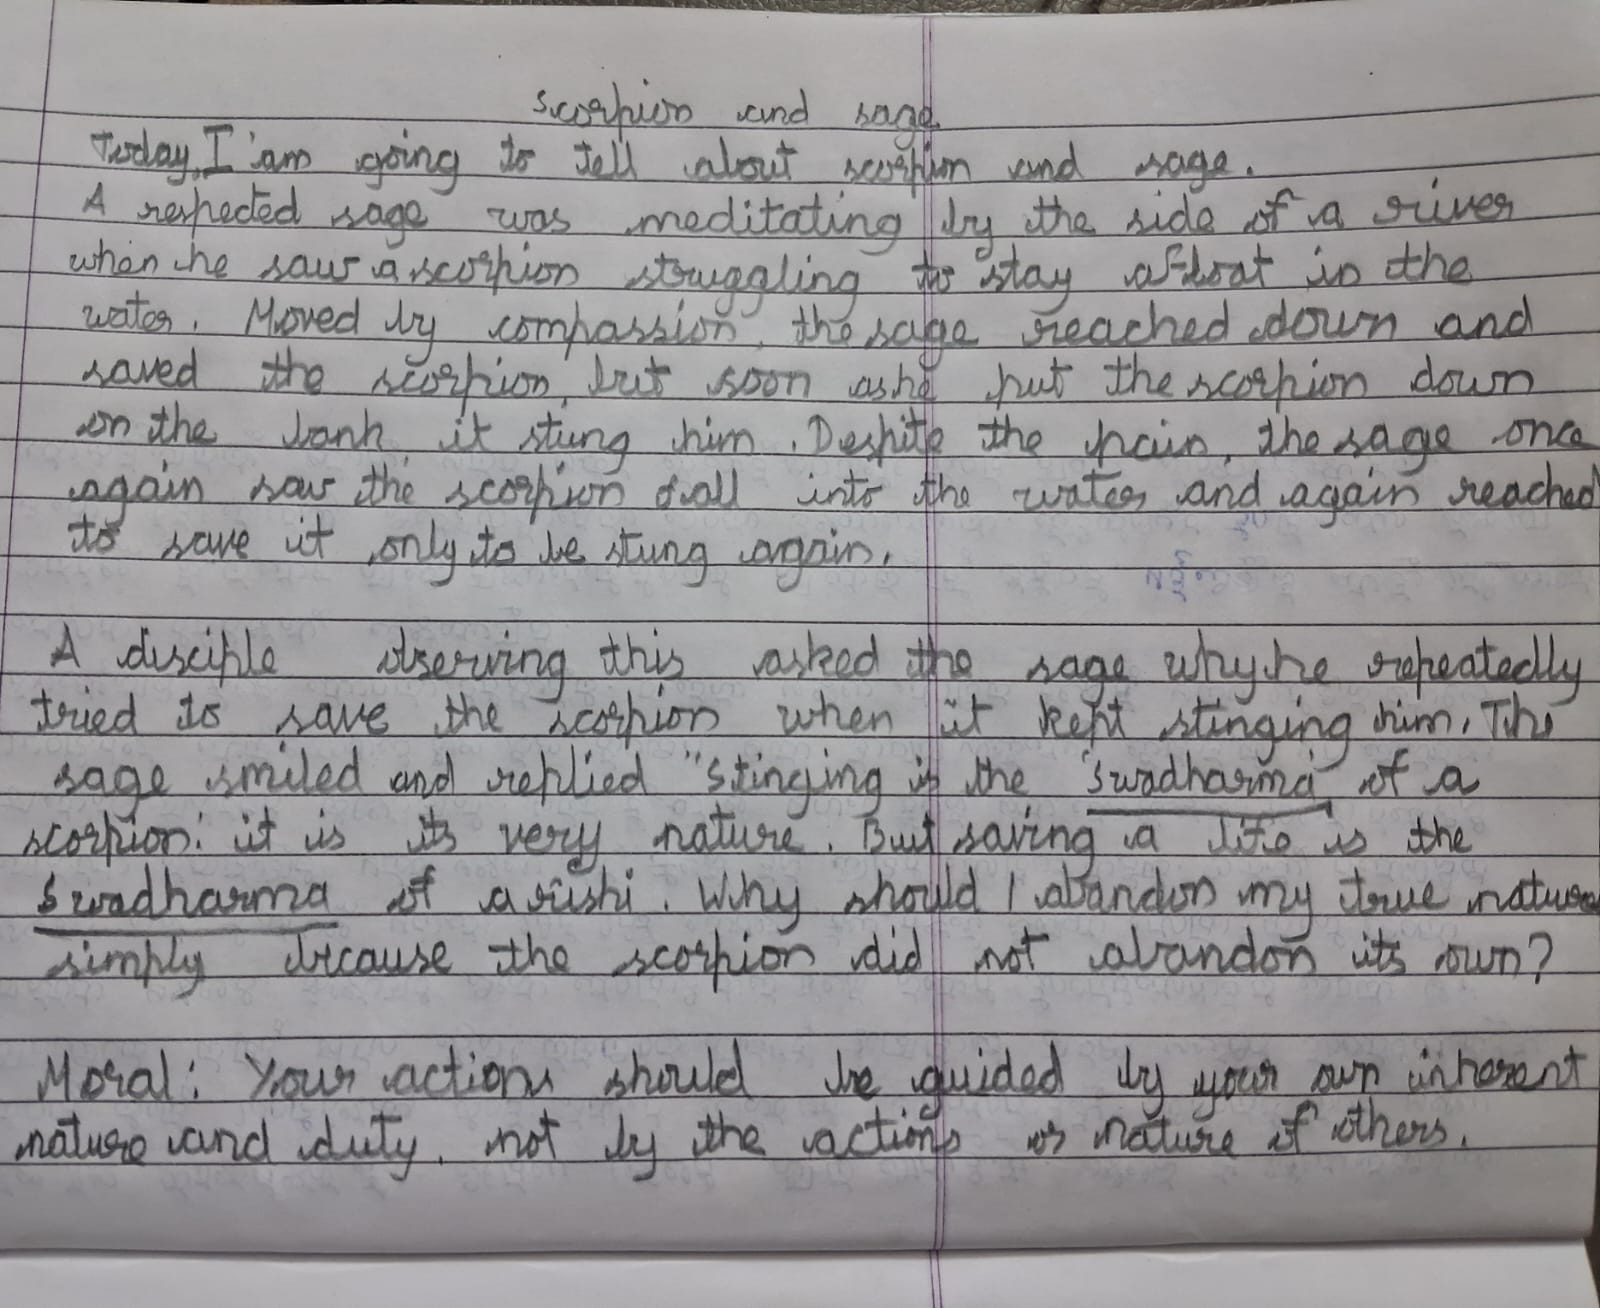 scorpion and sage
Today, I'am going to tell about scorpion and sage.
A respected sage was meditating by the side of a river
when he saw a scorpion struggling to stay afloat in the
water. Moved by compassion, the sage reached down and
saved the scorpion, but soon as he put the scorpion down
on the bank, it stung him. Despite the pain, the sage once
again saw the scorpion fall into the water and again reached
to save it only to be stung again.
A disciple observing this asked the sage why he repeatedly
tried to save the scorpion when it kept stinging him. The
sage smiled and replied "stinging is the 'swadharma' of a
scorpion: it is its very nature. But saving a life is the
swadharma of a rishi. Why should I abandon my true nature
simply because the scorpion did not abandon its own?
Moral: Your actions should be guided by your own inherent
nature and duty, not by the actions or nature of others.